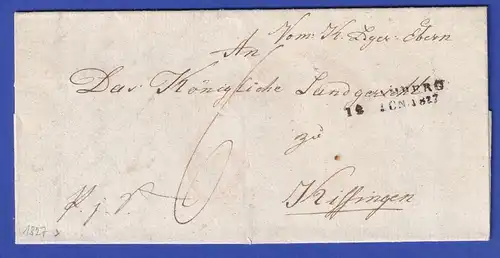 Vom K. Lger. Ebern
An
Das Königliche Landgericht
BAMBERG
14 JUN. 1827
zu
Kissingen
6
1827